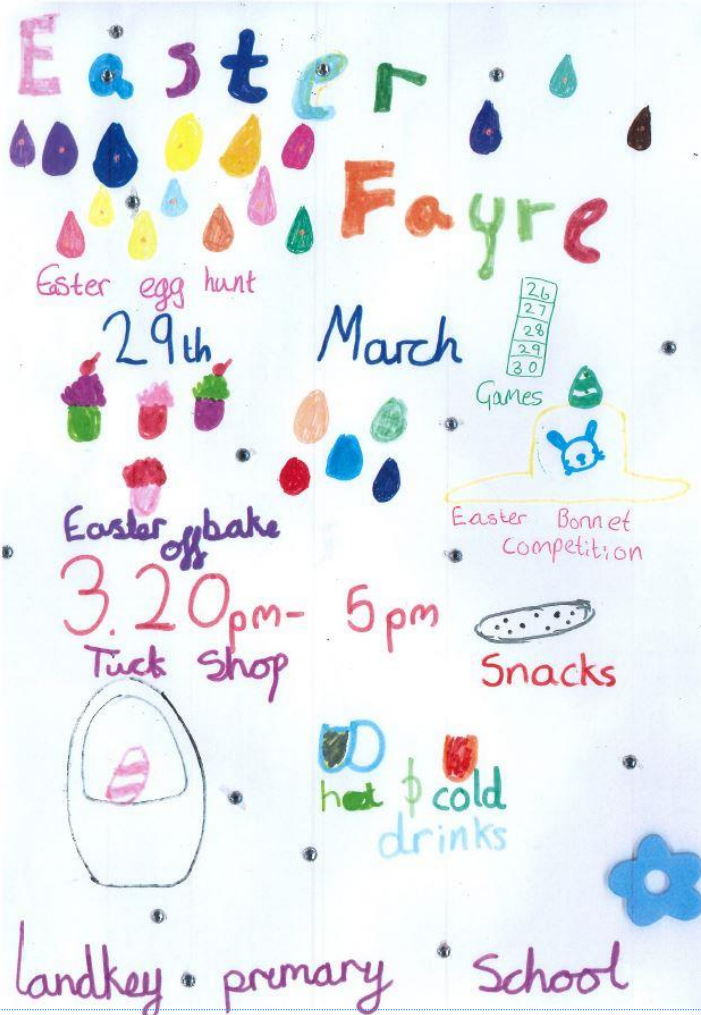 Easter
Fayre
Easter egg hunt
29th March
26
27
28
29
30
Games
Easter off bake
Easter Bonnet
Competition
3.20pm- 5pm
Tuck Shop
Snacks
hot & cold
drinks
landkey primary School